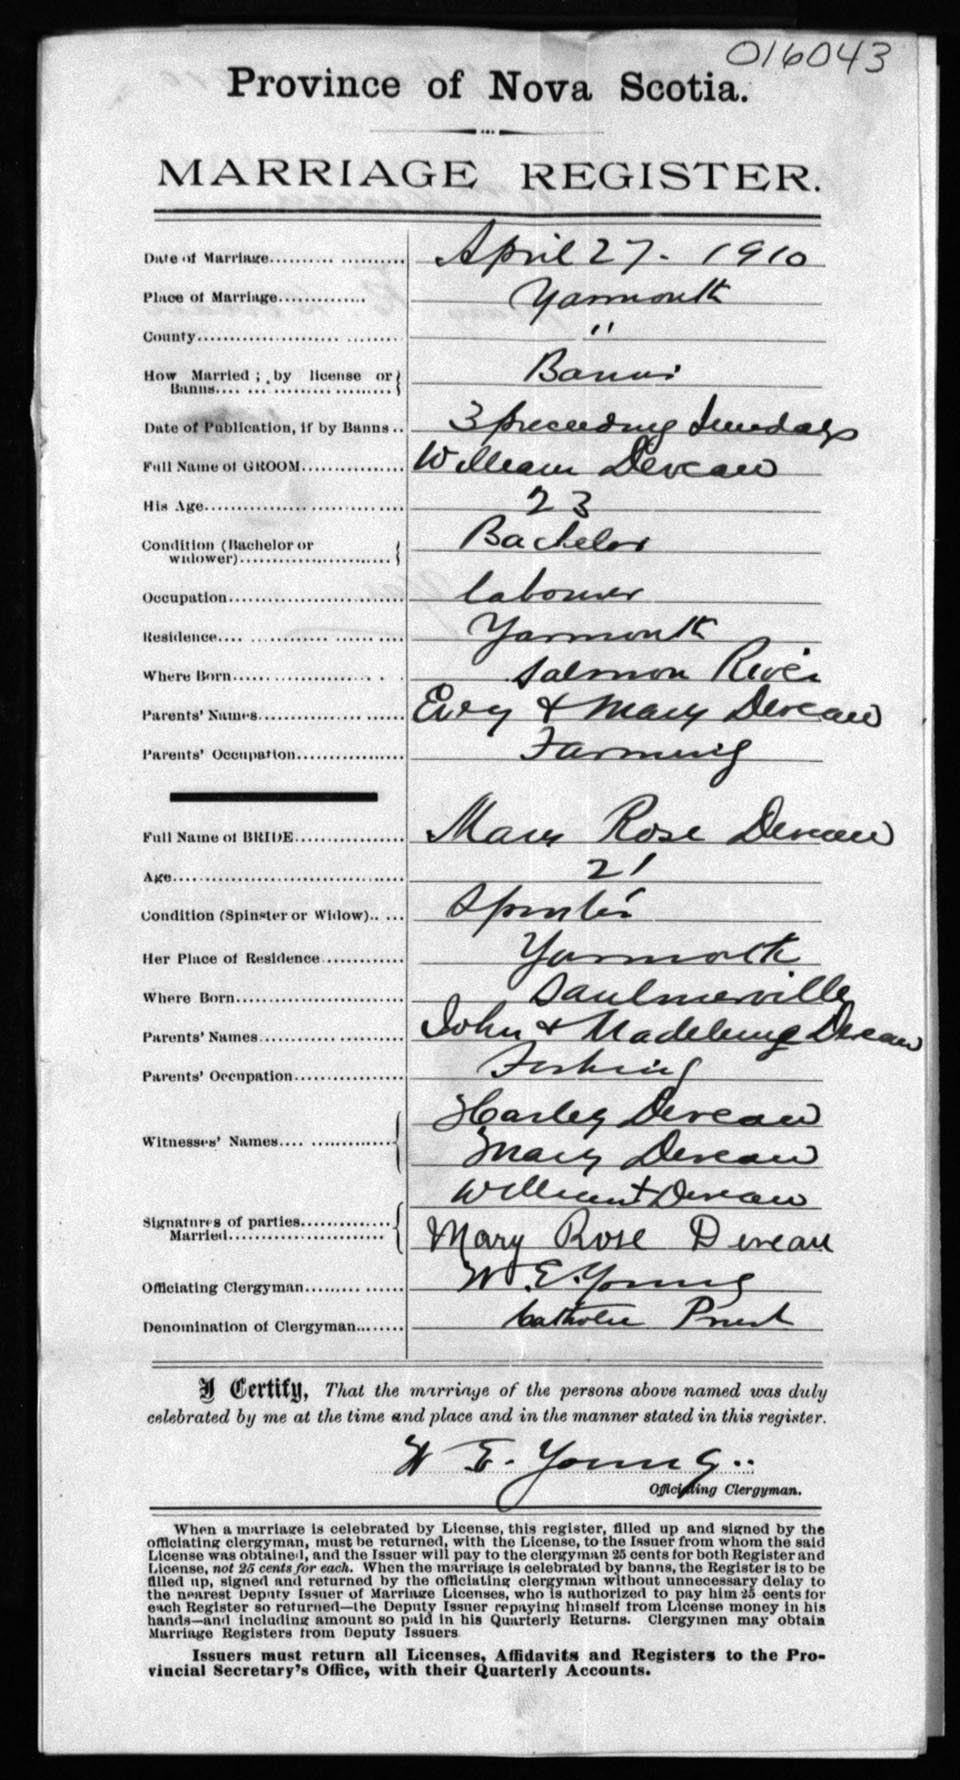 016043
Province of Nova Scotia.
MARRIAGE REGISTER.
Date of Marriage.......... .......... April 27. 1910
Place of Marriage.............. Yarmouth
County....................... ........ "
How Married ; by license or Banns.... ... .................. Banns
Date of Publication, if by Banns .. 3 preceeding Sundays
Full Name of GROOM................ William Deveau
His Age...................... ............ 23
Condition (Bachelor or widower)........................ Bachelor
Occupation........................... labourer
Residence.... ... ........... ..... .... Yarmouth
Where Born..................... . . Salmon River
Parents' Names................. ...... & Mary Deveau
Parents' Occupation................. Farming
Full Name of BRIDE................ Mary Rose Deveau
Age.................................... 21
Condition (Spinster or Widow).. ... Spinster
Her Place of Residence............. Yarmouth
Where Born.......................... Saulnierville
Parents' Names....................... John & Deveau
Parents' Occupation................. Fishing
Witnesses' Names.... ............... Harley Deveau
Mary Deveau
Signatures of parties Married........................ William + Deveau
Mary Rose Deveau
Officiating Clergyman......... ...... W. E. Young
Denomination of Clergyman........ Catholic Priest
I Certify, That the marriage of the persons above named was duly
celebrated by me at the time and place and in the manner stated in this register.
W E. Young..
Officiating Clergyman.
When a marriage is celebrated by License, this register, filled up and signed by the
officiating clergyman, must be returned, with the License, to the Issuer from whom the said
License was obtained, and the Issuer will pay to the clergyman 25 cents for both Register and
License, not 25 cents for each. When the marriage is celebrated by banns, the Register is to be
filled up, signed and returned by the officiating clergyman without unnecessary delay to
the nearest Deputy Issuer of Marriage Licenses, who is authorized to pay him 25 cents for
each Register so returned—the Deputy Issuer repaying himself from License money in his
hands—and including amount so paid in his Quarterly Returns. Clergymen may obtain
Marriage Registers from Deputy Issuers
Issuers must return all Licenses, Affidavits and Registers to the Pro-
vincial Secretary's Office, with their Quarterly Accounts.